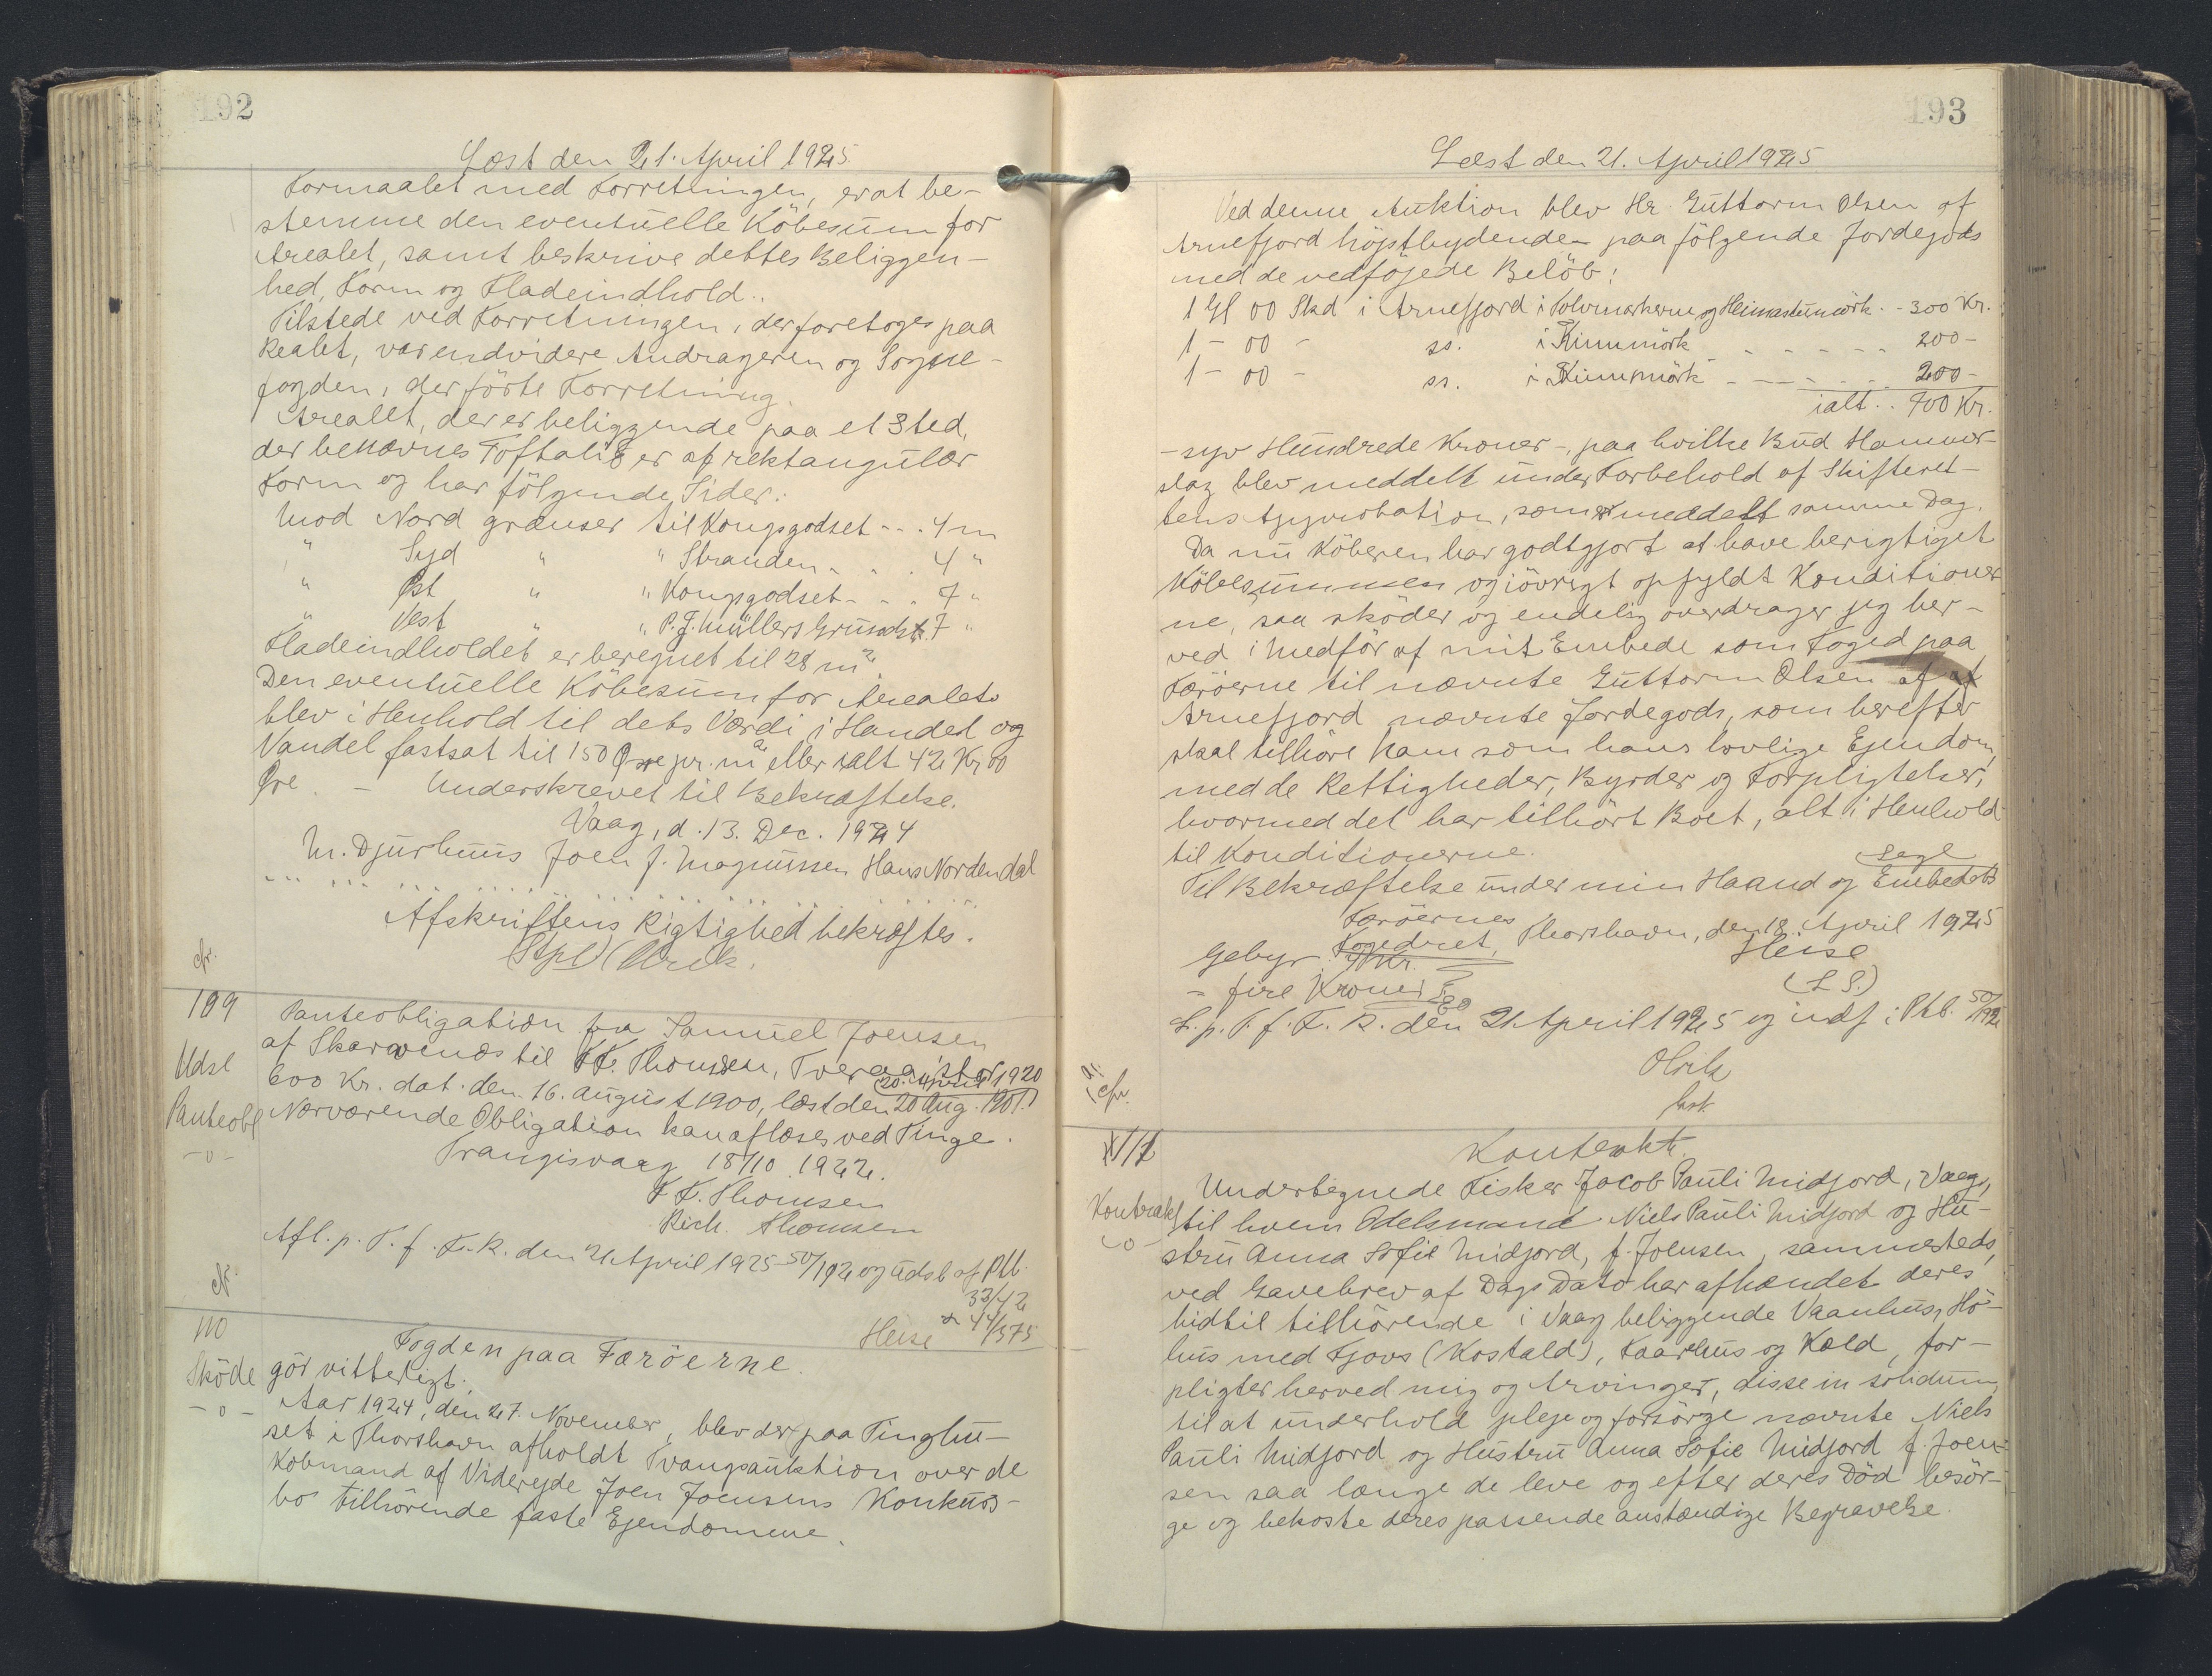 192
Læst den 21. April 1925
Formaalet med Forretningen, er at be-
stemme den eventuelle Köbesum for
Arealet, samt beskrive dettes Beliggen-
hed, Form og Fladeindhold.
Tilstede ved Forretningen, der foretoges paa
Realet, var endvidere Andrageren og Sogne-
fogden, der förte Forretning.
Arealet, der er beliggende paa et Sted,
der benævnes Toftalið er af rektangulær
Form og har fölgende Sider:
Mod Nord grænser til Kongsgodset - - . 4 m
" Syd " " Stranden - . . . 4 "
" Øst " " Kongsgodset - - . 7 "
" Vest " " P. J. Müllers Grundst. 7 "
Fladeindholdet er beregnet til 28 m².
Den eventuelle Köbesum for Arealets
blev i Henhold til dets Værdi i Handel og
Vandel fastsat til 150 Øre pr. m² eller ialt 42 Kr 00
Øre. - Underskrevet til Bekræftelse.
Vaag, d. 13. Dec. 1924
M. Djurhuus Joen J. Magnussen Hans Nordendal
Afskriftens Rigtighed bekræftes.
(Stpl) Olrik.
cfr.
109
Udsl
Panteobl
-o-
Panteobligation fra Samuel Joensen
af Skarvenæs til F.F. Thomsen, Tveraa, stor
600 Kr. dat. den 16. August 1900, læst den 20 Aug. 1901.
(20. April 1920
Nærværende Obligation kan aflæses ved Tinge.
Trangisvaag 18/10 1922.
F F. Thomsen
Rich. Thomsen
Afl. p. T. f. F. R. den 21 April 1925 50/192 og udsl af Ptb.
33/42
& 44/575
Heise
N
110
Sköde
-o-
Fogden paa Færöerne.
gör vitterligt:
Aar 1924, den 27. November, blev der paa Tinghu-
set i Thorshavn afholdt Tvangsauktion over de
Köbmand af Viderejde Joen Joensens Konkurs-
bo tilhörende faste Ejendomme.
193
Læst den 21. April 1925
Ved denne Auktion blev Hr. Guttorm Olsen af
Arnefjord höjstbydende paa fölgende Jordegods
med de vedföjede Belöb:
1 Gl 00 Skd i Arnefjord i Tolvmarkerne og Heimastumörk. - 300 Kr.
1 - 00 - ss. i Kinnmörk - - - - - - 200 -
1 - 00 - ss. i Kinnmörk - - - - - - 200 -
ialt . . 700 Kr.
- syv Hundrede Kroner -, paa hvilke Bud Hammer-
slag blev meddelt under Forbehold af Skifteret-
tens Approbation, som er meddelt samme Dag.
Da nu Köberen har godtgjort at have berigtiget
Köbesummen og iövrigt opfyldt Konditioner-
ne, saa sköder og endelig overdrager jeg her-
ved i Medför af mit Embede som Foged paa
Færöerne til nævnte Guttorm Olsen af
Arnefjord nævnte Jordegods, som herefter
skal tilhöre ham som hans lovlige Ejendom
med de Rettigheder, Byrder og Forpligtelser,
hvormed det har tilhört Boet, alt i Henhold
til Konditionerne.
Til Bekræftelse under min Haand og Embedets
Segl
Færöernes
Fogedret, Thorshavn, den 18. April 1925
Gebyr 4 Kr. Heise
- fire Kroner (L S.)
L. p. T. f. F. R. den 21. April 1925 og indf i Ptb. 50/192
Olrik
fast
cfr.
111
Kontrakt
-o-
Kontrakt.
Undertegnede Fisker Jacob Pauli Midjord, Vaag,
til hvem Odelsmand Niels Pauli Midjord og Hu-
stru Anna Sofie Midjord, f. Joensen, sammesteds,
ved Gavebrev af Dags Dato har afhændet deres
hidtil tilhörende i Vaag beliggende Vaanhus, Hö-
hus med Fjovs (Kostald), Faarehus og Kæld, for-
pligter herved mig og Arvinger, disse in solidum
til at underhold pleje og forsörge nævnte Niels
Pauli Midjord og Hustru Anna Sofie Midjord f. Joen-
sen saa længe de leve og efter deres Död besör-
ge og bekoste deres passende anstændige Begravelse.